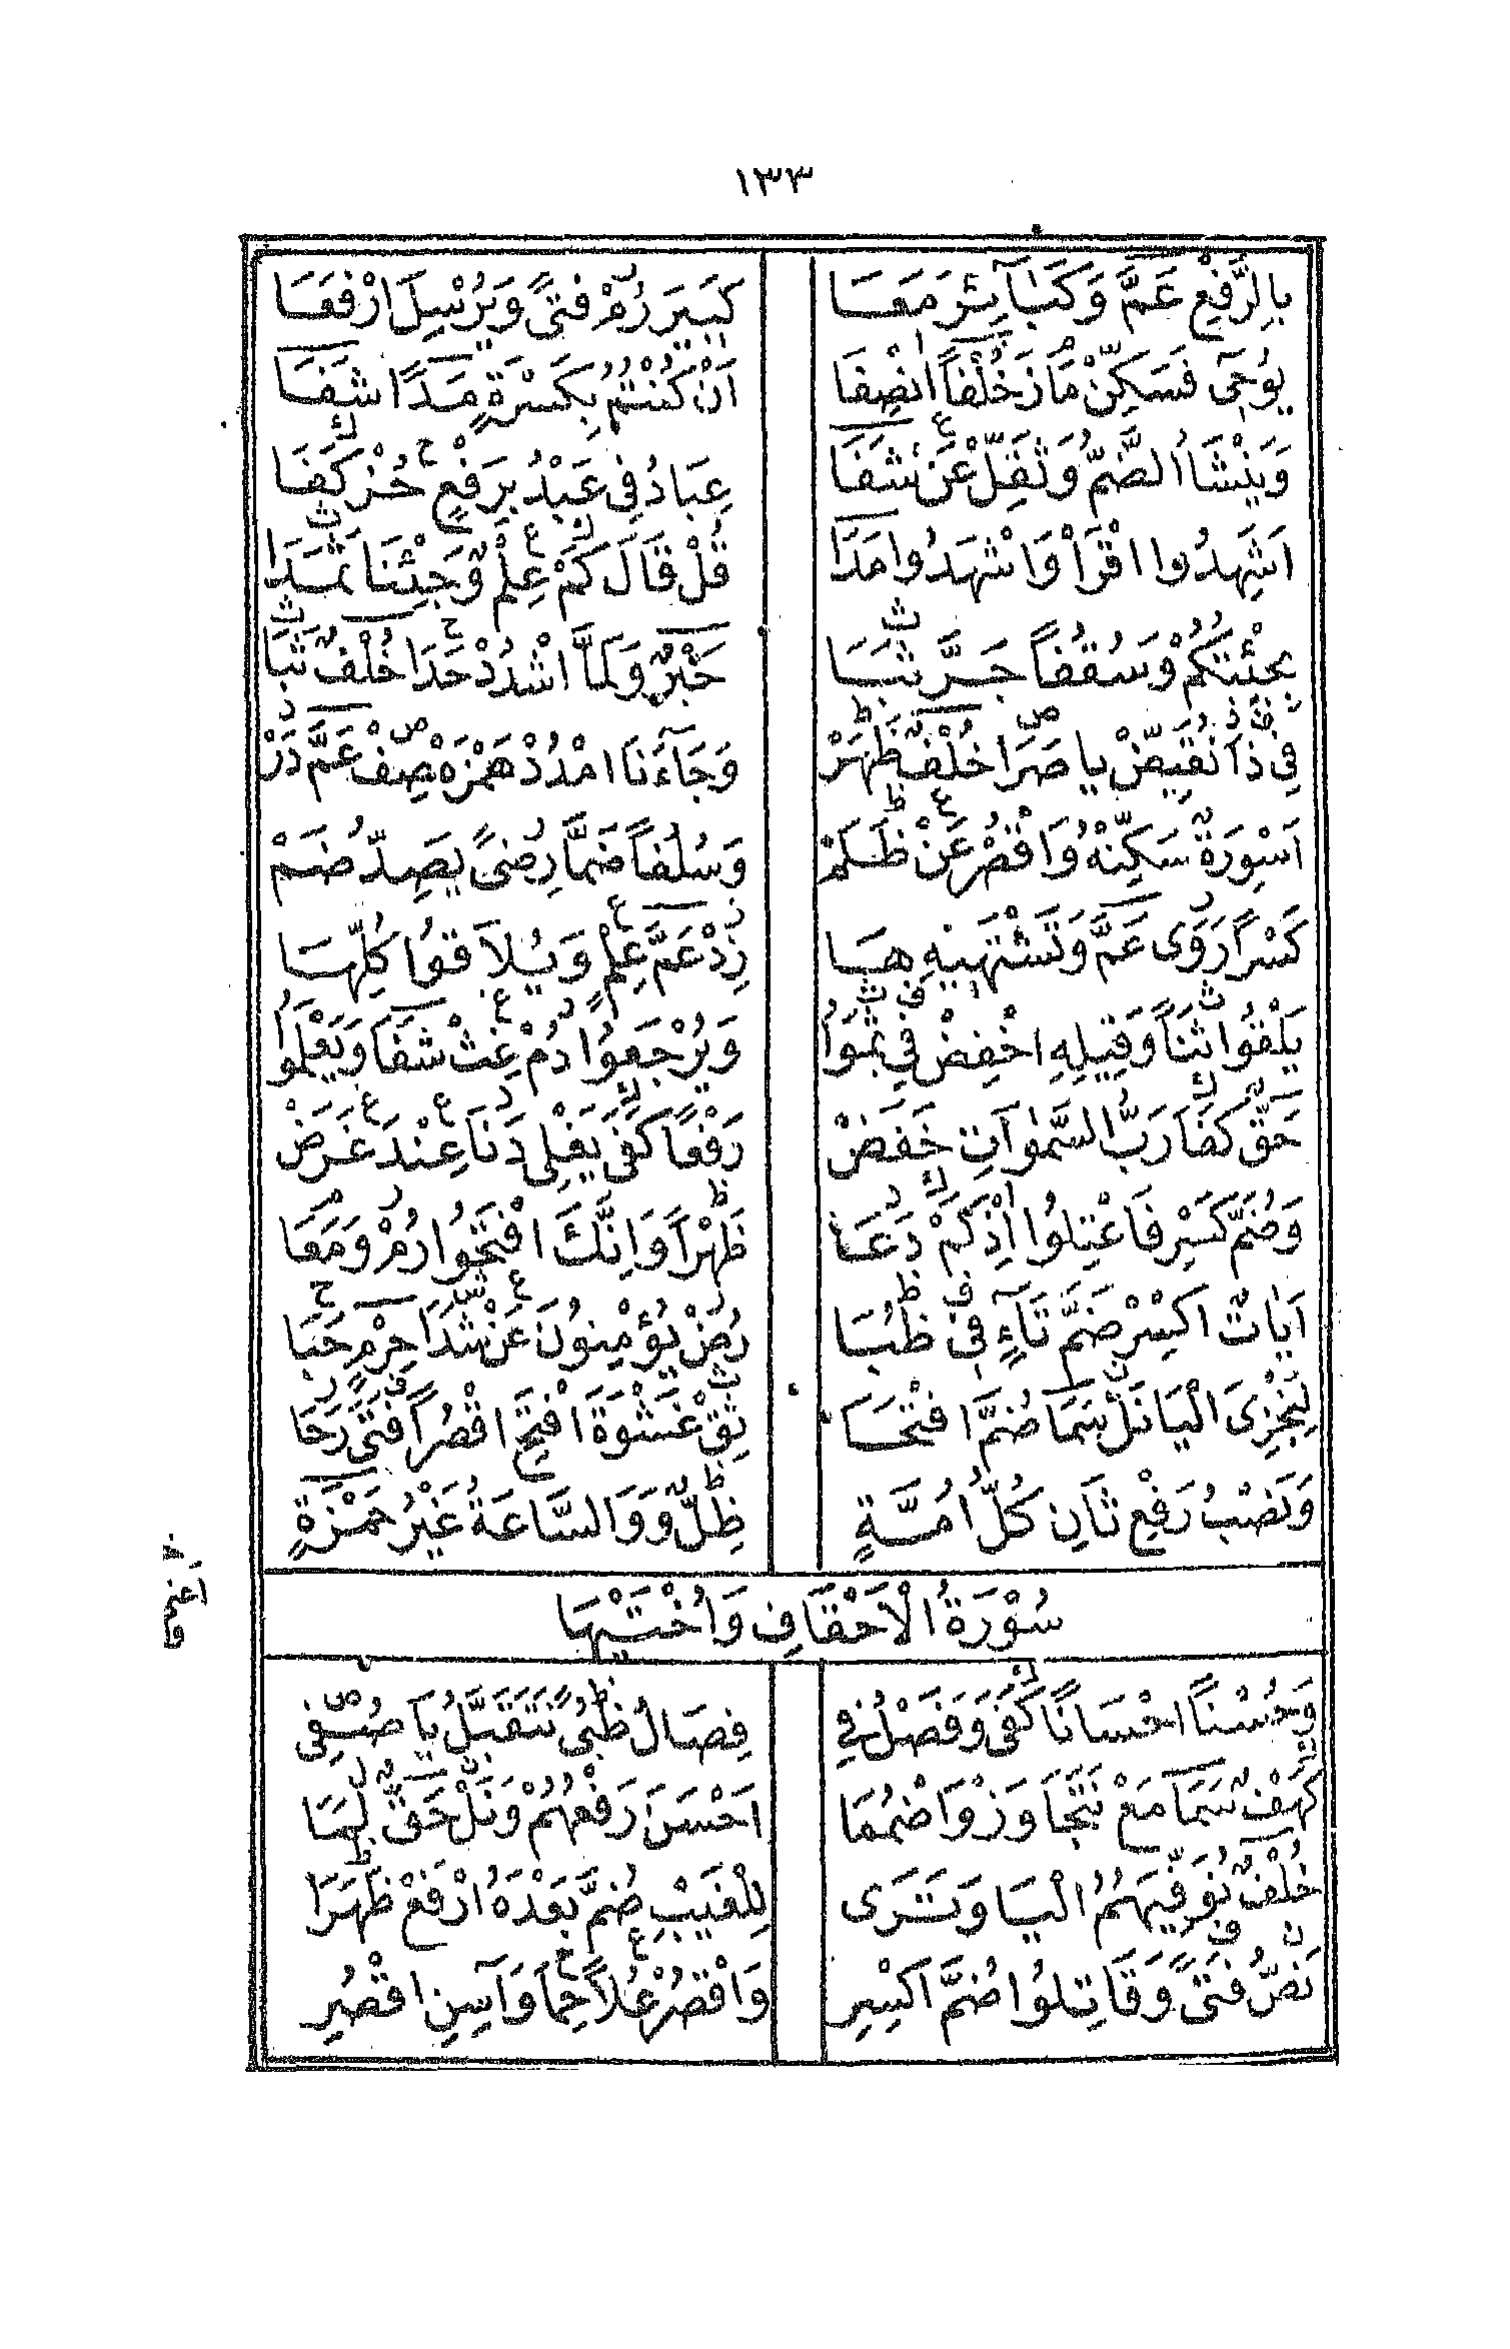 ١٣٣
بِالرَّفْعِ عَمَّ وَكَبَآئِرَ مَعَـا كَبِيرَ رُمْ فَتىً وَيُرْسِلَ ارْفَعَـا
يُوحِىَ فَسَكِّنْ مَّازَ خُلْفاً انْصِفَا اَنْ كُنْتُمُ بِكَسْرَةٍ مَـدًا شَفَـا
وَيَنْشَأُ الضَّمُّ وَثَقِّلْ عَنْ شَفَا عِبَادُ فِى عَبْدُ بِرَفْعٍ حُزْ كَفَـا
اَشَهِدُوا اقْرَأْ وَاشْهَدُوا مَدًا قُلْ قَالَ كَمْ عِلْمٌ وَجِئْنَا ثَمَـدَا
بِجِئْتُكُمْ وَسُقُفاً جَـرَّ ثَبَـا حَبْرٌ وَلَمَّا اشْدُدْ حَدَا خُلْفٌ نَبَا
فِى ذَا نُقَيِّضْ يا صَرَا خُلْفٌ ظَهَرْ وَجَآءَنَا امْدُدْ هَمْزَهُ صِفْ عَمَّ دَرْ
اَسْوِرَةٌ سَكِّنْهُ وَاقْصُرْ عَنْ ظَـلَمْ وَسُلُفاً ضَمَّا رِضىً يَصِدُّ ضُـمْ
كَسْراً رَوَى عَمَّ وَتَشْتَهِيْهِ هـَا زِدْ عَمَّ عِلْمٍ وَيُلاَقُوا كُلِّهـَا
يَلْقَوْا ثَنَاً وَقِيلِهِ اخْفِضْ فِى نَمَوْا وَيُرْجَعُوا دُمْ غِثْ شَفَا وَيَعْلَمُوا
حَقٌّ كَفَا رَبُّ السَّمٰوَاتِ خَفَضْ رَفْعًا كَفَى يَغْلِى دَنَا عِنْدَ غَـرَضْ
وَضُمَّ كَسْرِ فَاعْتِلُوا اِذْ كَمْ دَعَـا ظَهْراً وَاِنَّكَ افْتَحُوا رُمْ وَمَعَا
اَيَاتٌ اكْسِرْ ضَمَّ تَآءٍ فِى ظُبَـا رُضْ يُؤْمِنُونَ عَنْ شَدَا حِرْمٍ حَبَا
لِنَجْزِىَ الْيَا نَلْ سَمَا ضُمَّ افْتَحَـا ثِقْ غَشْوَةً افْتَحِ اقْصُراً فَتىً رَحَا
وَنَصْبُ رَفْعِ ثَانِ كُلُّ اُمَـّـةٍ ظِلٌّ وَوَالسَّاعَةُ غَيْرُ حَمْـزَةٍ
سُوْرَةُ الْاَحْقَافِ وَاُخْتَيْهَا
وَحُسْنًا احْسَانًا كَفَى وَفَصْلُ فِى فِصَالُ ظَبْىٌ نَتَقَبَّلُ يَا صُـفِى
كَهْفٌ سَمَا مَعْ نَتَجَاوَزْ وَاضْمُمَا اَحْسَنَ رَفْعُهُمْ وَنَلْ حَقٌّ لِمَـا
خُلْفٌ نُوَفِّيَهُمُ الْيَـا وَتَـرَى لِلْغَيْبِ ضُمَّ بَعْدَهُ ارْفَعْ ظَهَـرَا
نَصٌّ فَتىً وَقَاتِلُوا ضُمَّ اكْسِرِ وَاقْصُرْ عُلاً حِماً وَآسِنِ اقْصُرِ